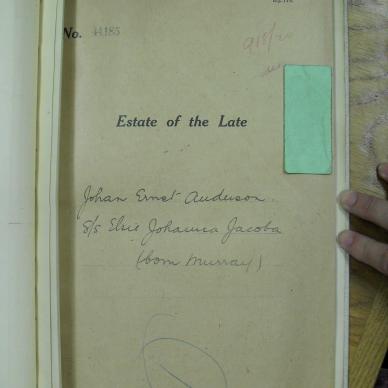 No. 44185
Estate of the Late
Johan Ernst Anderson
S/s Elsie Johanna Jacoba
(born Murray)